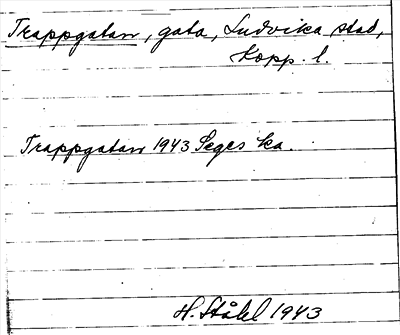 Trappgatan, gata, Ludvika stad,
Kopp. l.
Trappgatan 1943 Seges ka.
H. Ståhl 1943